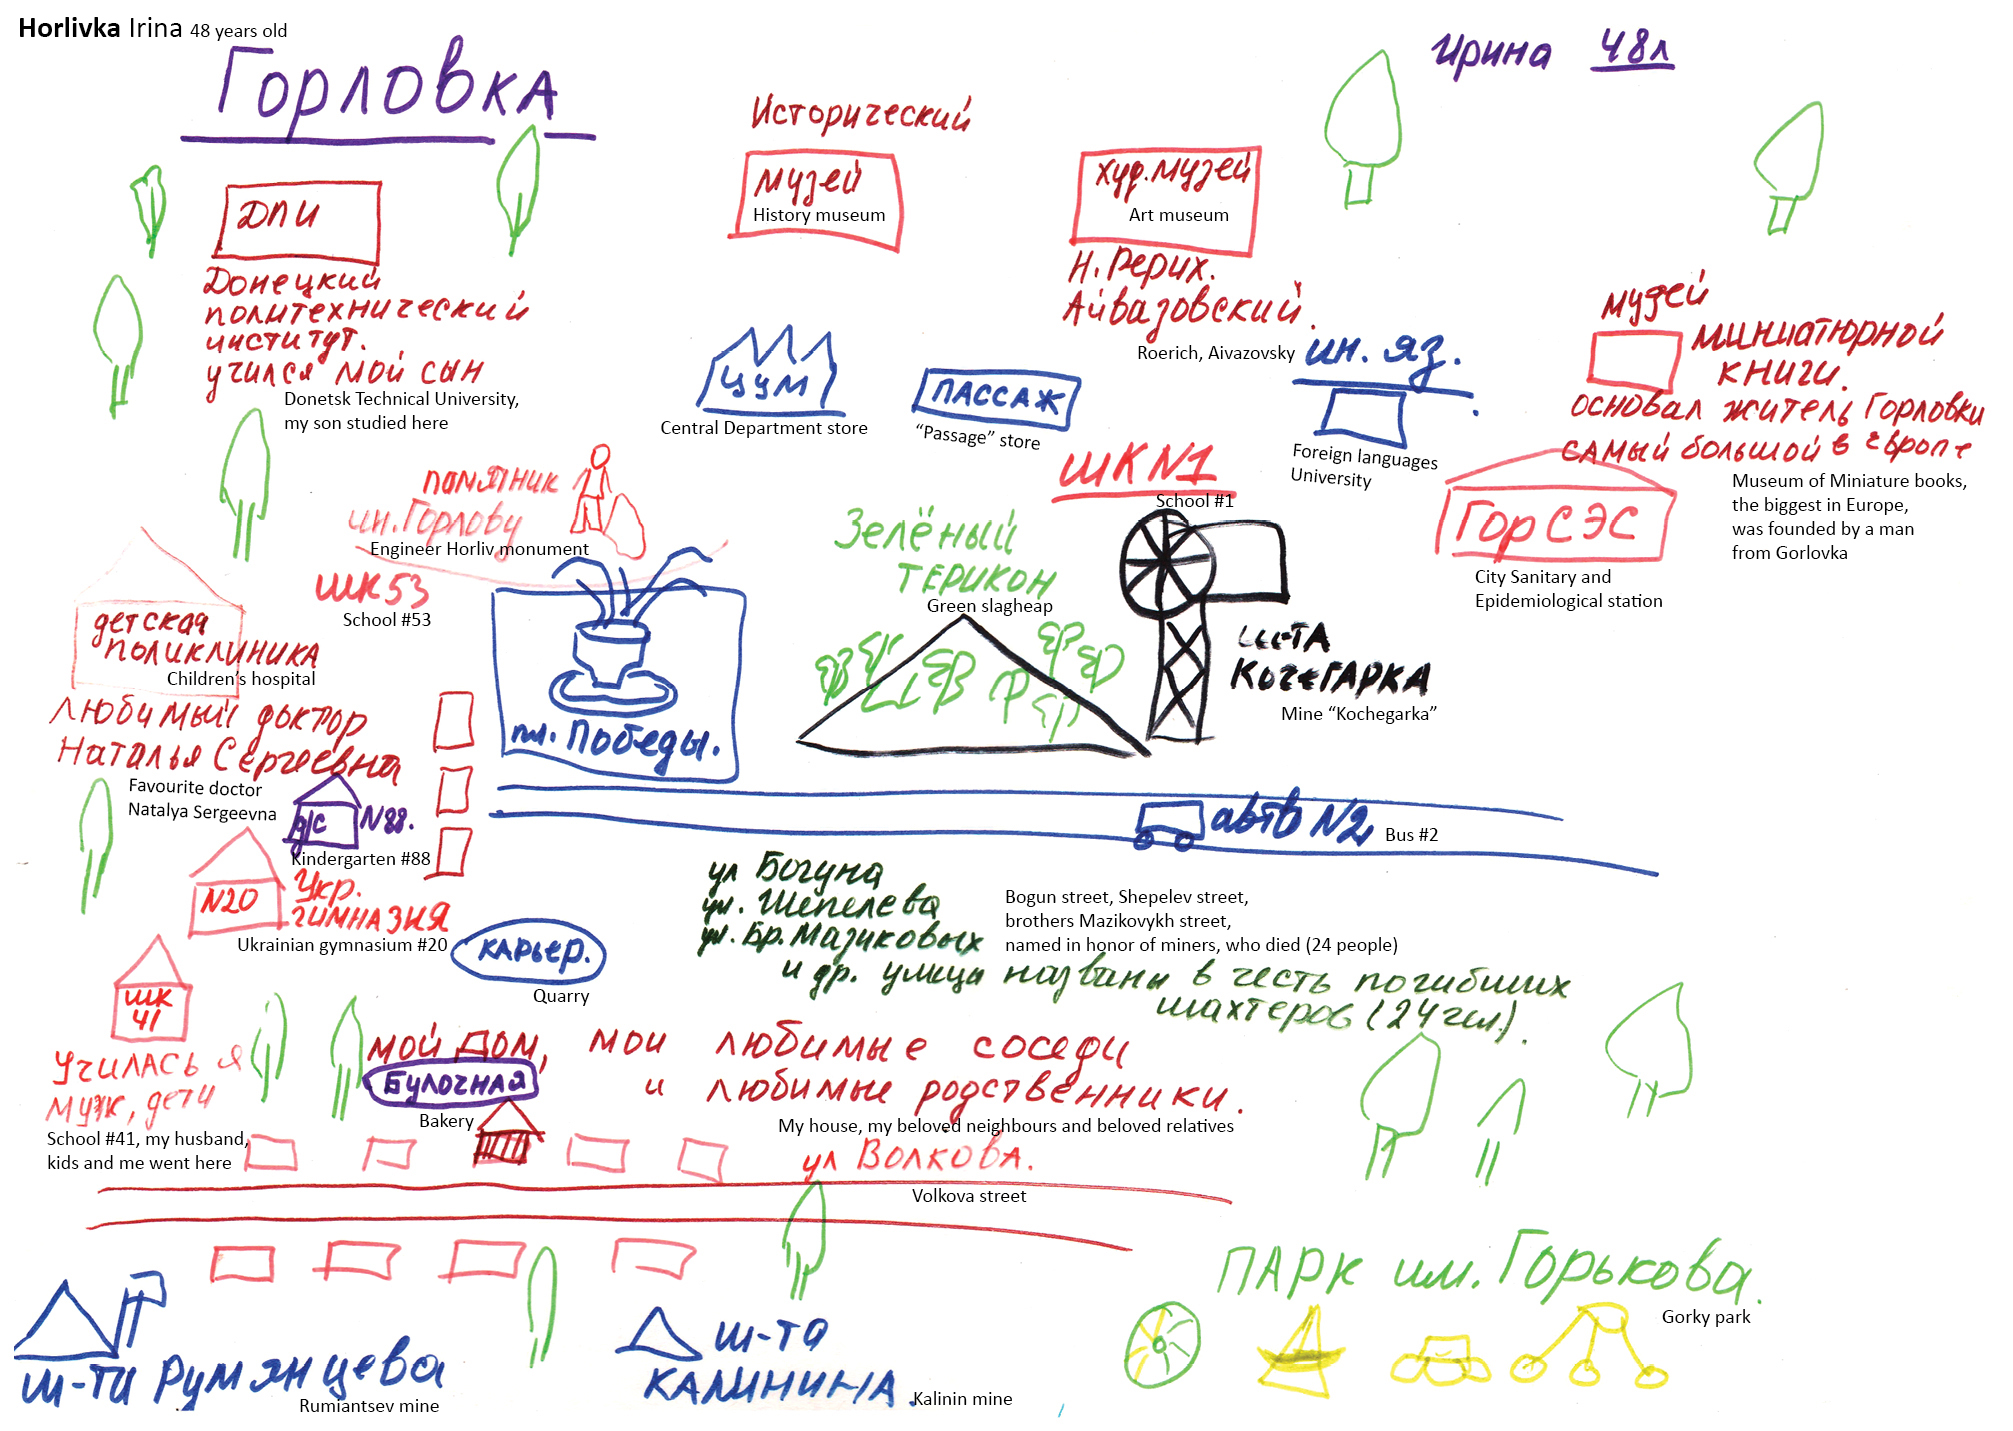 Horlivka Irina 48 years old
Горловка
Ирина 48л
Исторический
музей
History museum
худ. музей
Art museum
Н. Рерих.
Айвазовский.
Roerich, Aivazovsky
ДПИ
Донецкий
политехнический
институт.
учился мой сын
Donetsk Technical University,
my son studied here
ЦУМ
Central Department store
ПАССАЖ
“Passage” store
ин. яз.
Foreign languages
University
музей
миниатюрной
книги.
основал житель Горловки
самый большой в Европе
Museum of Miniature books,
the biggest in Europe,
was founded by a man
from Gorlovka
ГорСЭС
City Sanitary and
Epidemiological station
памятник
ин. Горлову
Engineer Horliv monument
шк 53
School #53
шк N1
School #1
Зелёный
терикон
Green slagheap
ш-та
Кочегарка
Mine “Kochegarka”
детская
поликлиника
Children's hospital
любимый доктор
Наталья Сергеевна
Favourite doctor
Natalya Sergeevna
пл. Победы.
д/с N88.
Kindergarten #88
авт N2
Bus #2
N20
Укр.
гимназия
Ukrainian gymnasium #20
карьер.
Quarry
ул Богуна
ул. Шепелева
ул. Бр. Мазиковых
и др. улицы названы в честь погибших
шахтеров (24 чел.).
Bogun street, Shepelev street,
brothers Mazikovykh street,
named in honor of miners, who died (24 people)
шк
41
Училась я
муж, дети
School #41, my husband,
kids and me went here
мой дом, мои любимые соседи
и любимые родственники.
Булочная
Bakery
My house, my beloved neighbours and beloved relatives
ул Волкова.
Volkova street
ш-та Румянцева
Rumiantsev mine
ш-та
Калинина.
Kalinin mine
ПАРК им. Горькова.
Gorky park